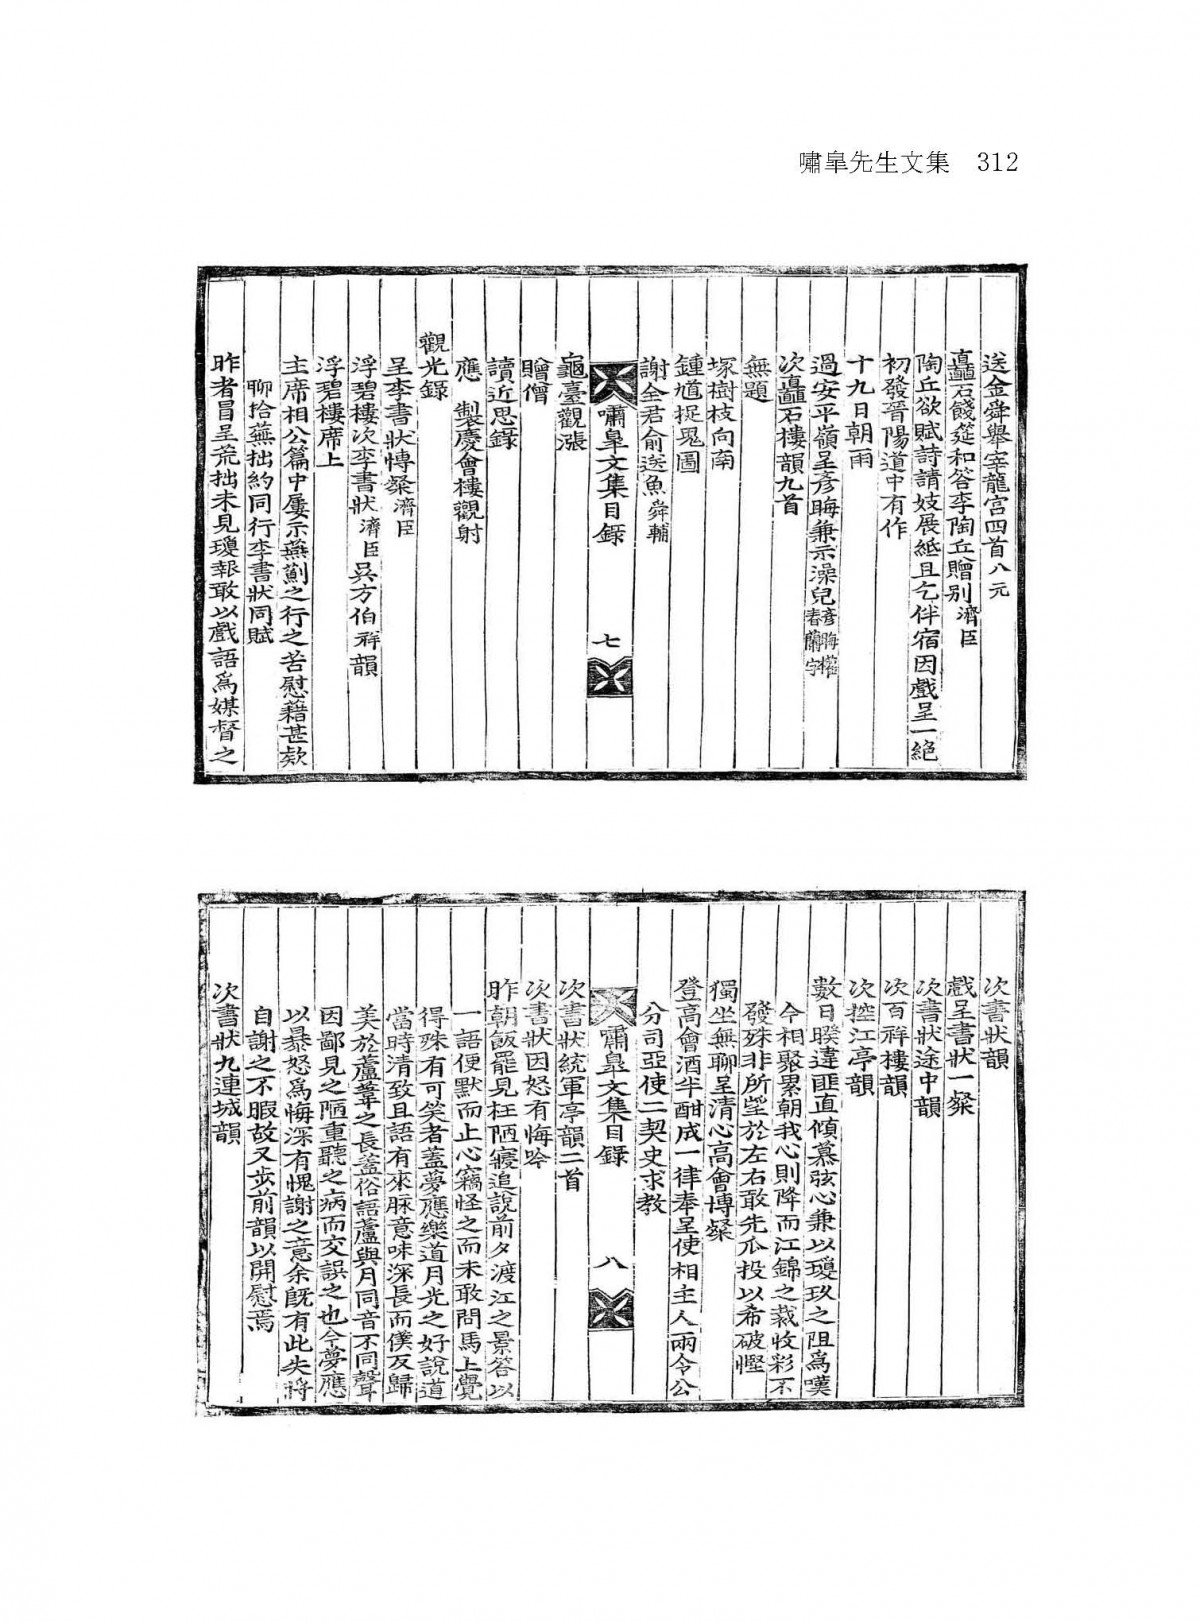 嘯皐先生文集 312
送金舜擧宰龍宮四首 八元
矗石餞筵和答李陶丘贈別 濟臣
陶丘欲賦詩請妓展紙且乞伴宿因戲呈一絶
初發晉陽道中有作
十九日朝雨
過安平嶺呈彦晦兼示澡兒 彦晦權春蘭字
次矗石樓韻九首
無題
塚樹枝向南
鍾馗捉鬼圖
謝全君俞送魚 舜輔
嘯皐文集目錄 七
龜臺觀漲
贈僧
讀近思錄
應 製慶會樓觀射
觀光錄
呈李書狀博粲 濟臣
浮碧樓次李書狀 濟臣 吳方伯 祥 韻
浮碧樓席上
主席相公篇中屢示燕薊之行之苦慰藉甚欸
聊拾蕪拙約同行李書狀同賦
昨者冒呈荒拙未見瓊報敢以戲語爲媒督之
次書狀韻
戲呈書狀一粲
次書狀途中韻
次百祥樓韻
次控江亭韻
數日暌違匪直傾慕弦心兼以瓊玖之阻爲嘆
今相聚累朝我心則降而江錦之裁收彩不
發殊非所望於左右敢先瓜投以希破慳
獨坐無聊呈淸心高會博粲
登高會酒半酣成一律奉呈使相主人兩令公
分司亞使二契史求教
嘯皐文集目錄 八
次書狀統軍亭韻二首
次書狀因怒有悔吟
昨朝飯罷見枉陋寢追說前夕渡江之景答以
一語便默而止心竊怪之而未敢問馬上覺
得殊有可笑者蓋夢應樂道月光之好說道
當時淸致且語有來脉意味深長而僕反歸
美於蘆葦之長蓋俗語蘆與月同音不同聲
因鄙見之陋重聽之病而交誤之也今夢應
以暴怒爲悔深有愧謝之意余旣有此失將
自謝之不暇故又步前韻以開慰焉
次書狀九連城韻